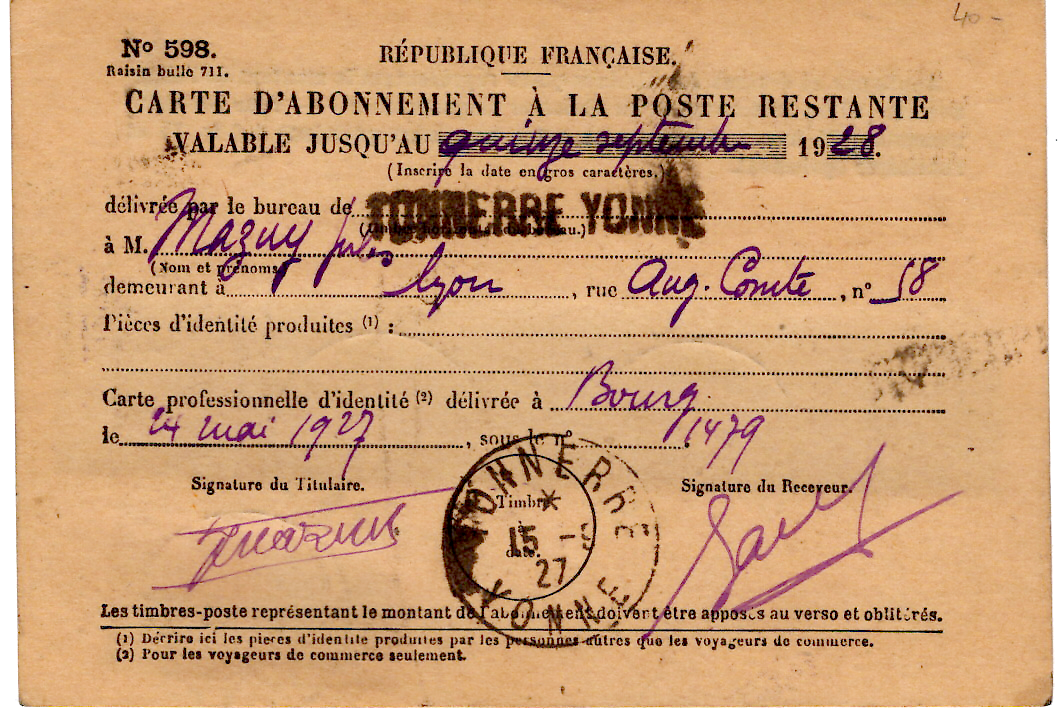 40-
No 598.
Raisin bulle 711.
RÉPUBLIQUE FRANÇAISE.
CARTE D'ABONNEMENT À LA POSTE RESTANTE
VALABLE JUSQU'AU quinze septembre 1928.
(Inscrire la date en gros caractères.)
délivrée par le bureau de TONNERRE YONNE
à M. Mazuy Jules
(Nom et prénoms
demeurant à Lyon, rue Aug. Comte, n° 58
Pièces d'identité produites (1) :
Carte professionnelle d'identité (2) délivrée à Bourg
le 24 mai 1927, sous le n° 1479
Signature du Titulaire. Signature du Receveur.
JMazuy
TONNERRE
Timbre
à
date.
15 -9
27
YONNE
Les timbres-poste représentant le montant de l'abonnement doivent être apposés au verso et oblitérés.
(1) Décrire ici les pièces d'identité produites par les personnes autres que les voyageurs de commerce.
(2) Pour les voyageurs de commerce seulement.